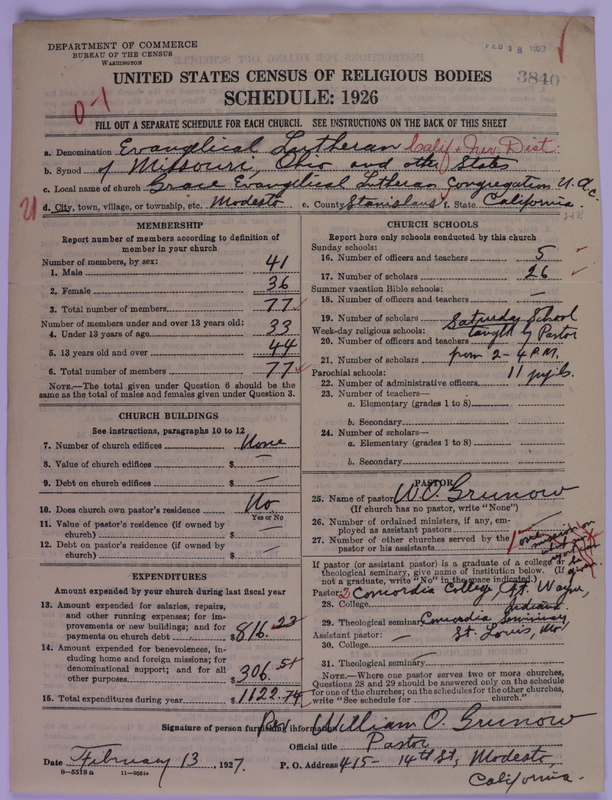 DEPARTMENT OF COMMERCE
BUREAU OF THE CENSUS
WASHINGTON
FEB 18 1927
3840
UNITED STATES CENSUS OF RELIGIOUS BODIES
SCHEDULE: 1926
0-1
FILL OUT A SEPARATE SCHEDULE FOR EACH CHURCH. SEE INSTRUCTIONS ON THE BACK OF THIS SHEET
a. Denomination Evangelical Lutheran Calif + Nev. Dist.
b. Synod of Missouri, Ohio and other States
c. Local name of church Grace Evangelical Lutheran Congregation U. A. C.
d. City, town, village, or township, etc. Modesto e. County Stanislaus f. State California.
MEMBERSHIP
Report number of members according to definition of
member in your church
Number of members, by sex:
1. Male 41
2. Female 36
3. Total number of members 77
Number of members under and over 13 years old:
4. Under 13 years of age 33
5. 13 years old and over 44
6. Total number of members 77
NOTE.—The total given under Question 6 should be the
same as the total of males and females given under Question 3.
CHURCH BUILDINGS
See instructions, paragraphs 10 to 12
7. Number of church edifices None
8. Value of church edifices $ —
9. Debt on church edifices $ —
10. Does church own pastor's residence No
Yes or No
11. Value of pastor's residence (if owned by
church) $ —
12. Debt on pastor's residence (if owned by
church) $ —
EXPENDITURES
Amount expended by your church during last fiscal year
13. Amount expended for salaries, repairs,
and other running expenses; for im-
provements or new buildings; and for
payments on church debt $816.23
14. Amount expended for benevolences, in-
cluding home and foreign missions; for
denominational support; and for all
other purposes $306.51
15. Total expenditures during year $1122.74
CHURCH SCHOOLS
Report here only schools conducted by this church
Sunday schools:
16. Number of officers and teachers 5
17. Number of scholars 26
Summer vacation Bible schools:
18. Number of officers and teachers —
19. Number of scholars
Saturday School
Week-day religious schools: taught by Pastor
20. Number of officers and teachers
21. Number of scholars from 2-4 P.M.
Parochial schools: 11 pupils.
22. Number of administrative officers
23. Number of teachers—
a. Elementary (grades 1 to 8)
b. Secondary
24. Number of scholars—
a. Elementary (grades 1 to 8)
b. Secondary
PASTOR
25. Name of pastor W.O. Grunow
(If church has no pastor, write "None")
26. Number of ordained ministers, if any, em-
ployed as assistant pastors —
27. Number of other churches served by the
pastor or his assistants 1
If pastor (or assistant pastor) is a graduate of a college or
theological seminary, give name of institution below. (If
not a graduate, write "No" in the space indicated.)
Pastor: 2 Concordia College Ft. Wayne,
28. College Indiana
29. Theological seminary Concordia Seminary,
Assistant pastor: — St. Louis, Mo.
30. College
31. Theological seminary —
NOTE.—Where one pastor serves two or more churches,
Questions 28 and 29 should be answered only on the schedule
for one of the churches; on the schedules for the other churches,
write "See schedule for church."
Signature of person furnishing information Rev. William O. Grunow
Official title Pastor
Date February 13, 1927. P. O. Address 415- 14th St., Modesto,
California.
8—5318a 11—9054a